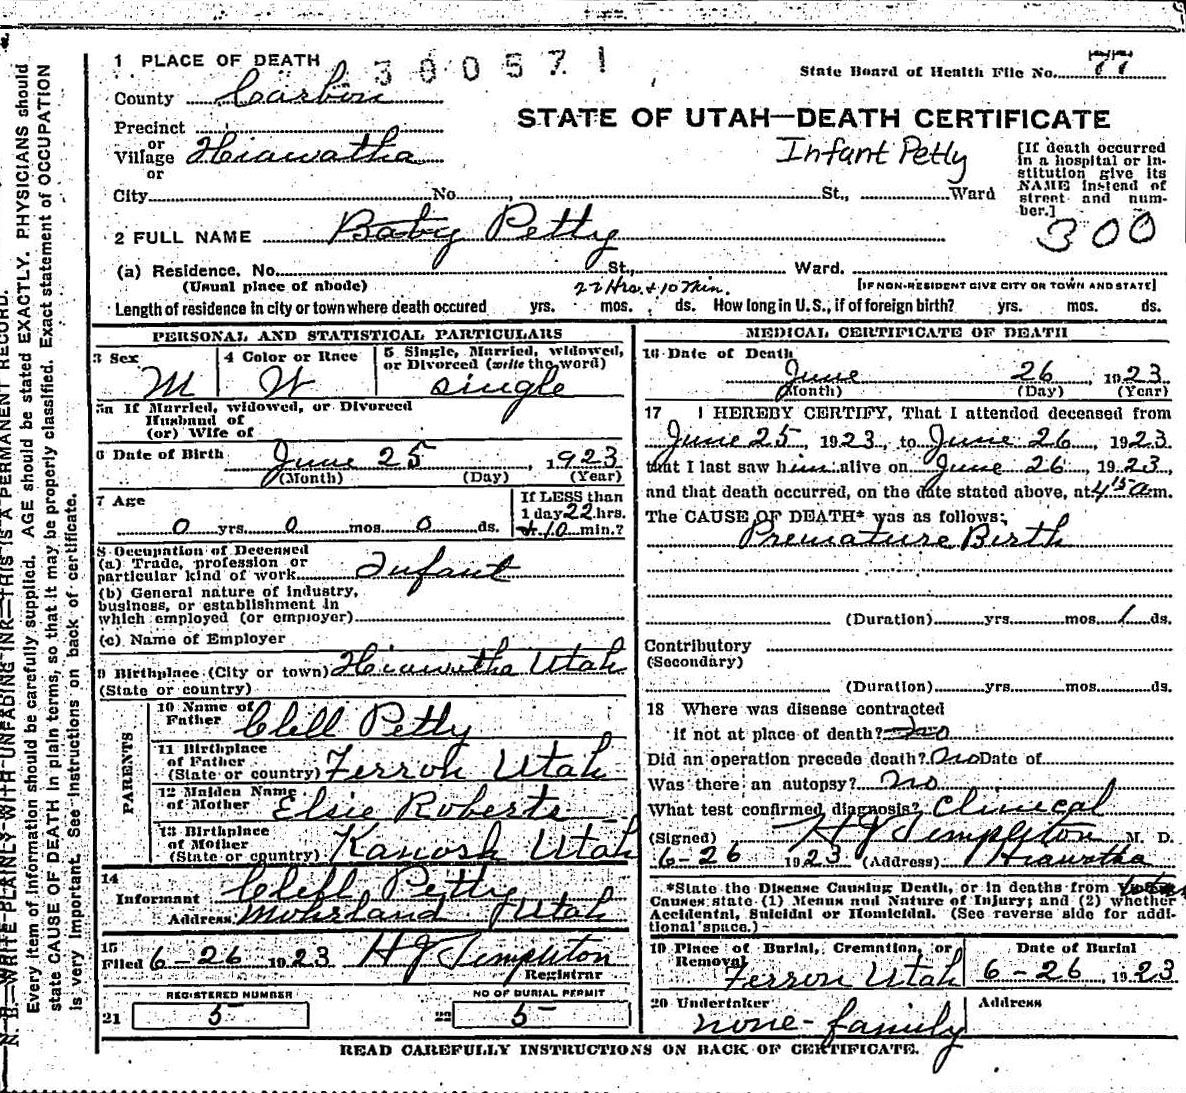 1 PLACE OF DEATH
300571
State Board of Health File No. 77
County Carbon
STATE OF UTAH—DEATH CERTIFICATE
Precinct
or
Village Hiawatha
or
Infant Petty
[If death occurred
in a hospital or in-
stitution give its
NAME instead of
street and num-
ber.]
City No. St., Ward
300
2 FULL NAME Baby Petty
(a) Residence. No. St., Ward.
(Usual place of abode)
22 Hrs. & 10 Min.
[IF NON-RESIDENT GIVE CITY OR TOWN AND STATE]
Length of residence in city or town where death occured yrs. mos. ds. How long in U. S., if of foreign birth? yrs. mos. ds.
PERSONAL AND STATISTICAL PARTICULARS
3 Sex
M
4 Color or Race
W
5 Single, Married, widowed,
or Divorced (write the word)
single
5a If Married, widowed, or Divorced
Husband of
(or) Wife of
6 Date of Birth June 25, 1923
(Month) (Day) (Year)
7 Age
0 yrs. 0 mos. 0 ds.
If LESS than
1 day 22 hrs.
+ 10 min.?
8 Occupation of Deceased
(a) Trade, profession or
particular kind of work Infant
(b) General nature of industry,
business, or establishment in
which employed (or employer)
(c) Name of Employer
9 Birthplace (City or town) Hiawatha Utah
(State or country)
PARENTS
10 Name of
Father Clell Petty
11 Birthplace
of Father
(State or country) Ferron Utah
12 Maiden Name
of Mother Elsie Roberts
13 Birthplace
of Mother
(State or country) Kanosh Utah
14
Informant Clell Petty
Address Mohrland Utah
15
Filed 6-26 1923 H J Templeton
Registrar
REGISTERED NUMBER
21 5
NO OF BURIAL PERMIT
22 5
MEDICAL CERTIFICATE OF DEATH
16 Date of Death
June 26, 1923
(Month) (Day) (Year)
17 I HEREBY CERTIFY, That I attended deceased from
June 25 1923, to June 26, 1923
that I last saw him alive on June 26, 1923,
and that death occurred, on the date stated above, at 4 15 a m.
The CAUSE OF DEATH* was as follows:
Premature Birth
(Duration) yrs. mos. 1 ds.
Contributory
(Secondary)
(Duration) yrs. mos. ds.
18 Where was disease contracted
if not at place of death? no
Did an operation precede death? no Date of
Was there an autopsy? no
What test confirmed diagnosis? Clinical
(Signed) H J Templeton M. D.
6-26 1923 (Address) Hiawatha
*State the Disease Causing Death, or in deaths from
Causes state (1) Menus and Nature of Injury; and (2) whether
Accidental, Suicidal or Homicidal. (See reverse side for addi-
tional space.)
19 Place of Burial, Cremation, or
Removal
Ferron Utah
Date of Burial
6-26, 1923
20 Undertaker
none-family
Address
READ CAREFULLY INSTRUCTIONS ON BACK OF CERTIFICATE.
N. B.—WRITE PLAINLY WITH UNFADING INK—THIS IS A PERMANENT RECORD.
Every item of information should be carefully supplied. AGE should be stated EXACTLY. PHYSICIANS should
state CAUSE OF DEATH in plain terms, so that it may be properly classified. Exact statement of OCCUPATION
is very important. See instructions on back of certificate.